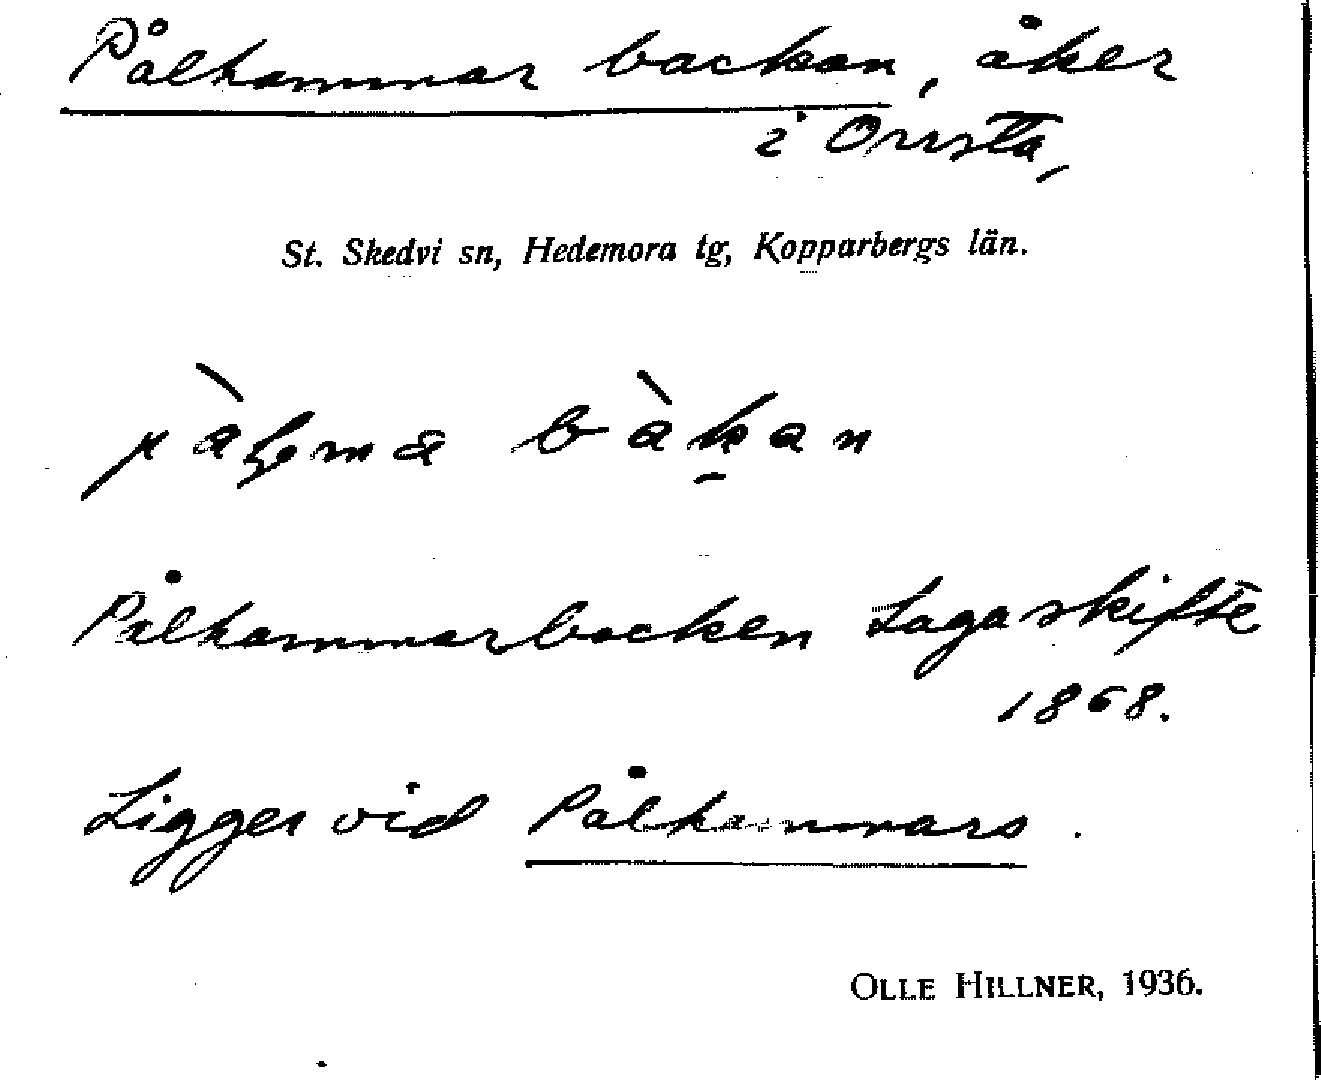 Pålhammar backan, åker
i Orrsta,
St. Skedvi sn, Hedemora tg, Kopparbergs län.
bàkan
Pålhammarbacken Lagaskifte
1868.
Ligger vid Pålhammars.
OLLE HILLNER, 1936.